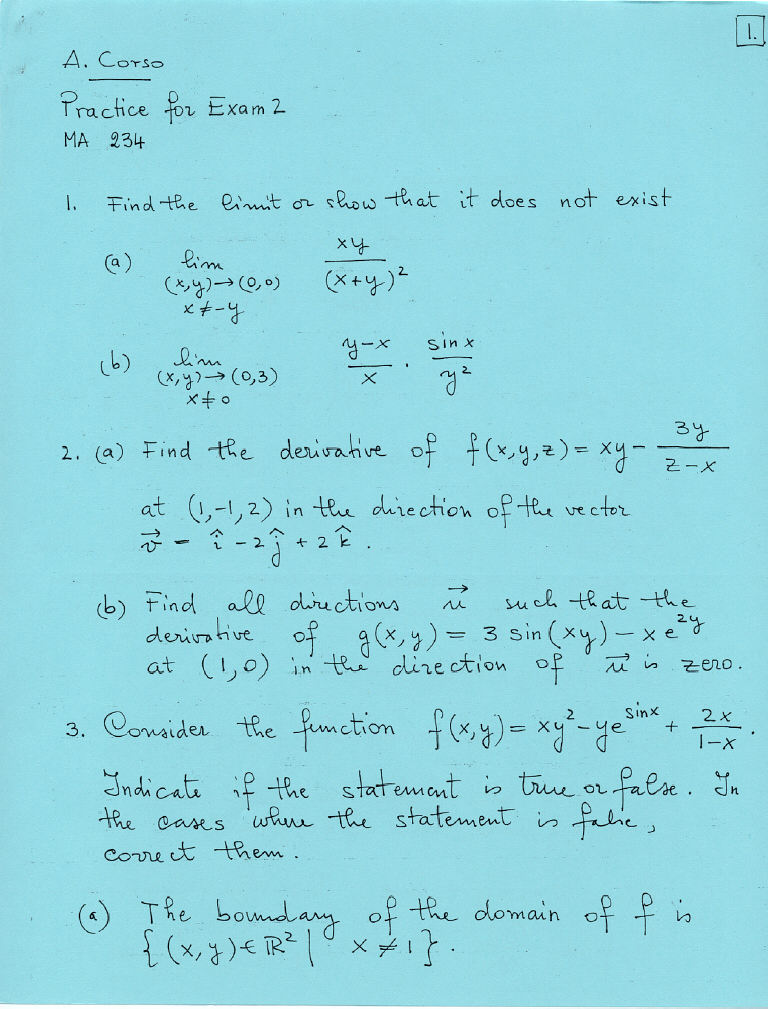 1.
A. Corso
Practice for Exam 2
MA 234
1. Find the limit or show that it does not exist
(a) lim_{(x,y)→(0,0), x≠-y} xy/(x+y)²
(b) lim_{(x,y)→(0,3), x≠0} (y-x)/x · sin x/y²
2. (a) Find the derivative of f(x,y,z) = xy - 3y/(z-x)
at (1,-1,2) in the direction of the vector
v⃗ = î - 2ĵ + 2k̂.
(b) Find all directions u⃗ such that the
derivative of g(x,y) = 3 sin(xy) - x e^{2y}
at (1,0) in the direction of u⃗ is zero.
3. Consider the function f(x,y) = xy² - ye^{sin x} + 2x/(1-x).
Indicate if the statement is true or false. In
the cases where the statement is false,
correct them.
(a) The boundary of the domain of f is
{(x,y) ∈ ℝ² | x ≠ 1}.